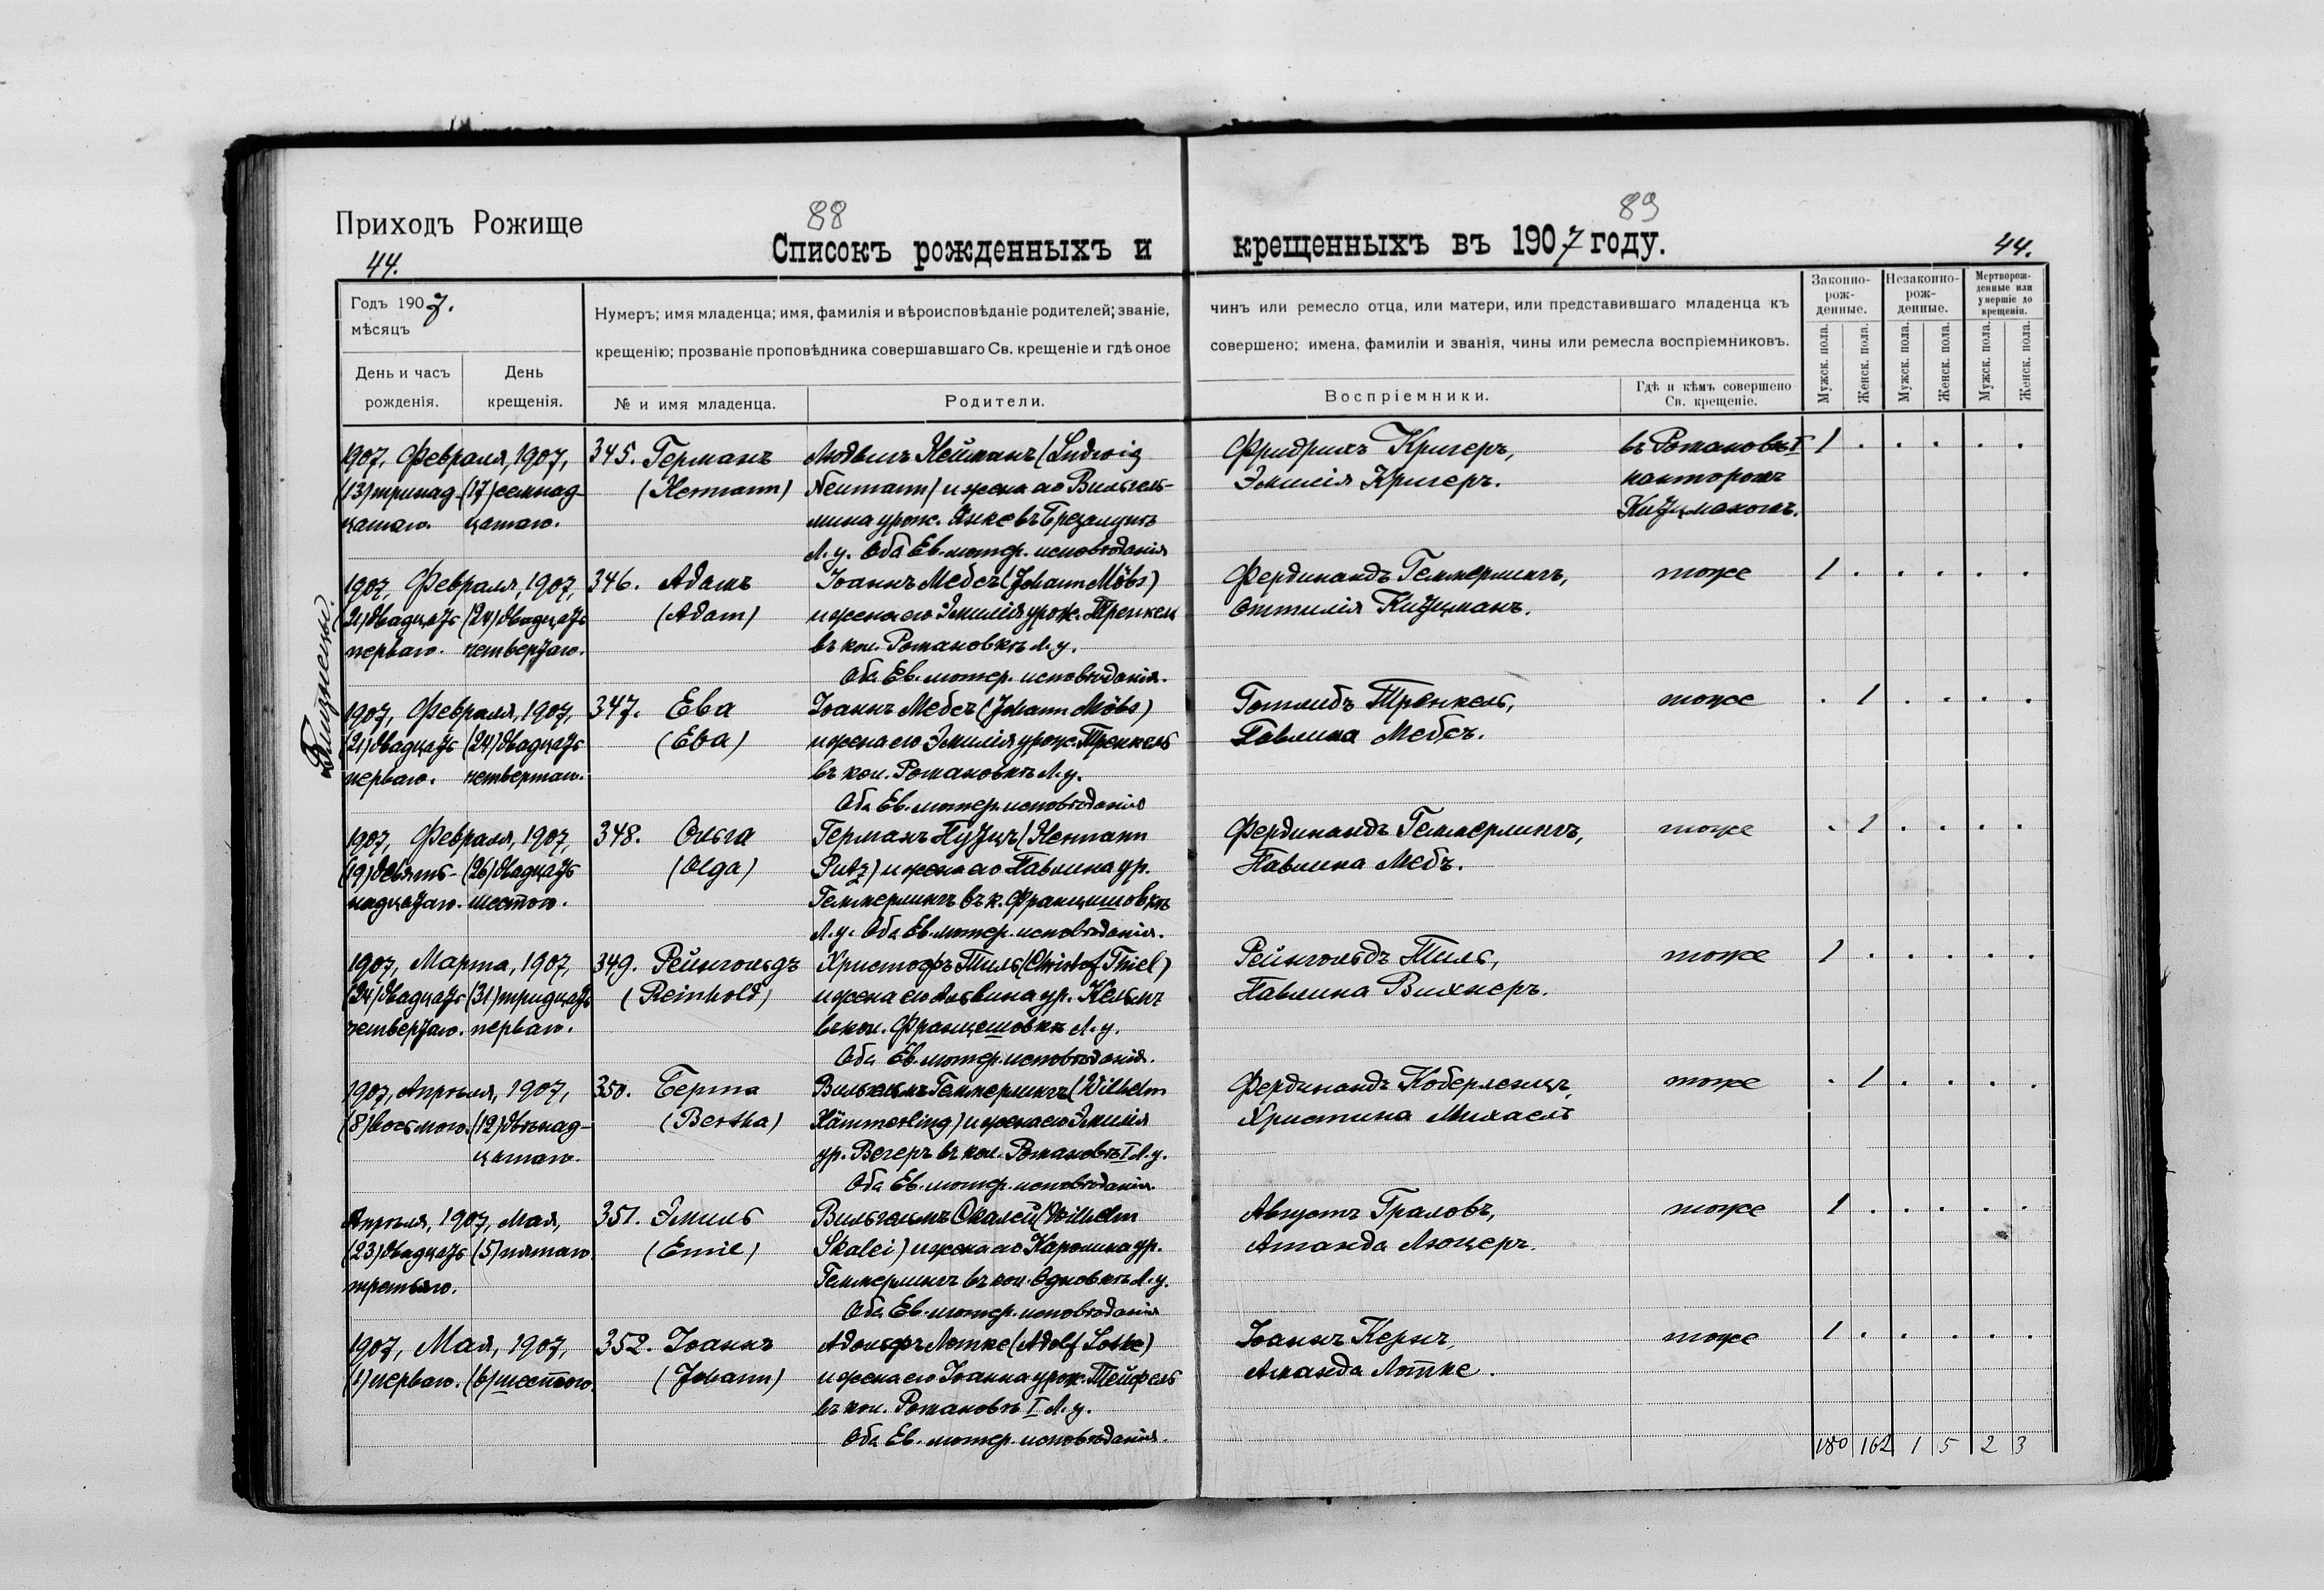 88
89
Приходъ Рожище
Списокъ рожденныхъ и крещенныхъ въ 1907 году.
44.
44.
Годъ 1907.
мѣсяцъ
День и часъ рожденія.
День крещенія.
Нумеръ; имя младенца; имя, фамилія и вѣроисповѣданіе родителей; званіе, чинъ или ремесло отца, или матери, или представившаго младенца къ
крещенію; прозваніе проповѣдника совершавшаго Св. крещеніе и гдѣ оное совершено; имена, фамиліи и званія, чины или ремесла воспріемниковъ.
№ и имя младенца.
Родители.
Воспріемники.
Гдѣ и кѣмъ совершено Св. крещеніе.
Законно-рож-денные.
Незаконно-рож-денные.
Мертворож-денные или умершіе до крещенія.
Мужск. пола.
Женск. пола.
Мужск. пола.
Женск. пола.
Мужск. пола.
Женск. пола.
1907, Февраля, 1907, 345. Германъ Людвигъ Нейманъ (Ludwig Фридрихъ Кригеръ, въ Романовкѣ I 1 . . . . .
(13) тринад- (17) семнад- (Hermann) Neumann) и жена его Вильгель- Эмилія Кригеръ. канторомъ
цатаго. цатаго. мина урож. Янке въ Кицманомъ.
Л. у. Оба Ев.-лютер. исповѣданія
Близнецы.
1907, Февраля, 1907, 346. Адамъ Іоаннъ Мебсъ (Johann Möbs) Фердинандъ Геммерлингъ, тоже 1 . . . . .
(21) двадцать (24) двадцать (Adam) и жена его Эмилія урож. Тренкель Оттилія Кицманъ.
перваго. четвертаго. въ кол. Романовкѣ Л. у.
Оба Ев.-лютер. исповѣданія.
1907, Февраля, 1907, 347. Ева Іоаннъ Мебсъ (Johann Möbs) Готлибъ Тренкель, тоже . 1 . . . .
(21) двадцать (24) двадцать (Eva) и жена его Эмилія урож. Тренкель Павлина Мебсъ.
перваго. четвертаго. въ кол. Романовкѣ Л. у.
Оба Ев.-лютер. исповѣданія
1907, Февраля, 1907, 348. Ольга Германъ Пуцъ (Hermann Фердинандъ Геммерлингъ, тоже . 1 . . . .
(19) девят- (26) двадцать (Olga) Putz) и жена его Павлина ур. Павлина Мебъ.
надцатаго. шестого. Геммерлингъ въ к. Францишовкѣ
Л. у. Оба Ев.-лютер. исповѣданія.
1907, Марта, 1907, 349. Рейнгольдъ Христофъ Тиль (Christof Thiel) Рейнгольдъ Тиль, тоже 1 . . . . .
(24) двадцать (31) тридцать (Reinhold) и жена его Альвина ур. Павлина Вихнеръ.
четвертаго. перваго. въ кол. Францешовкѣ Л. у.
Оба Ев.-лютер. исповѣданія.
1907, Апрѣля, 1907, 350. Берта Вильгельмъ Геммерлингъ (Wilhelm Фердинандъ тоже . 1 . . . .
(8) восьмого. (12) двѣнад- (Bertha) Hämmerling) и жена его Эмилія Христина Михаель
цатаго. ур. Вегеръ въ кол. Романовкѣ I Л. у.
Оба Ев.-лютер. исповѣданія.
Апрѣля, 1907, Мая, 351. Эмиль Вильгельмъ Скалей (Wilhelm Августъ Граловъ, тоже 1 . . . . .
(23) двадцать (5) пятаго. (Emil) Skalei) и жена его Каролина ур. Аманда Люцеръ.
третьяго. Геммерлингъ въ кол. Л. у.
Оба Ев.-лютер. исповѣданія
1907, Мая, 1907, 352. Іоаннъ Адольфъ Лотке (Adolf Lotke) Іоаннъ Кернъ, тоже 1 . . . . .
(1) перваго. (6) шестого. (Johann) и жена его Іоанна урож. Тейфель Аманда Лотке.
въ кол. Романовкѣ I Л. у.
Оба Ев.-лютер. исповѣданія.
180 162 1 5 2 3